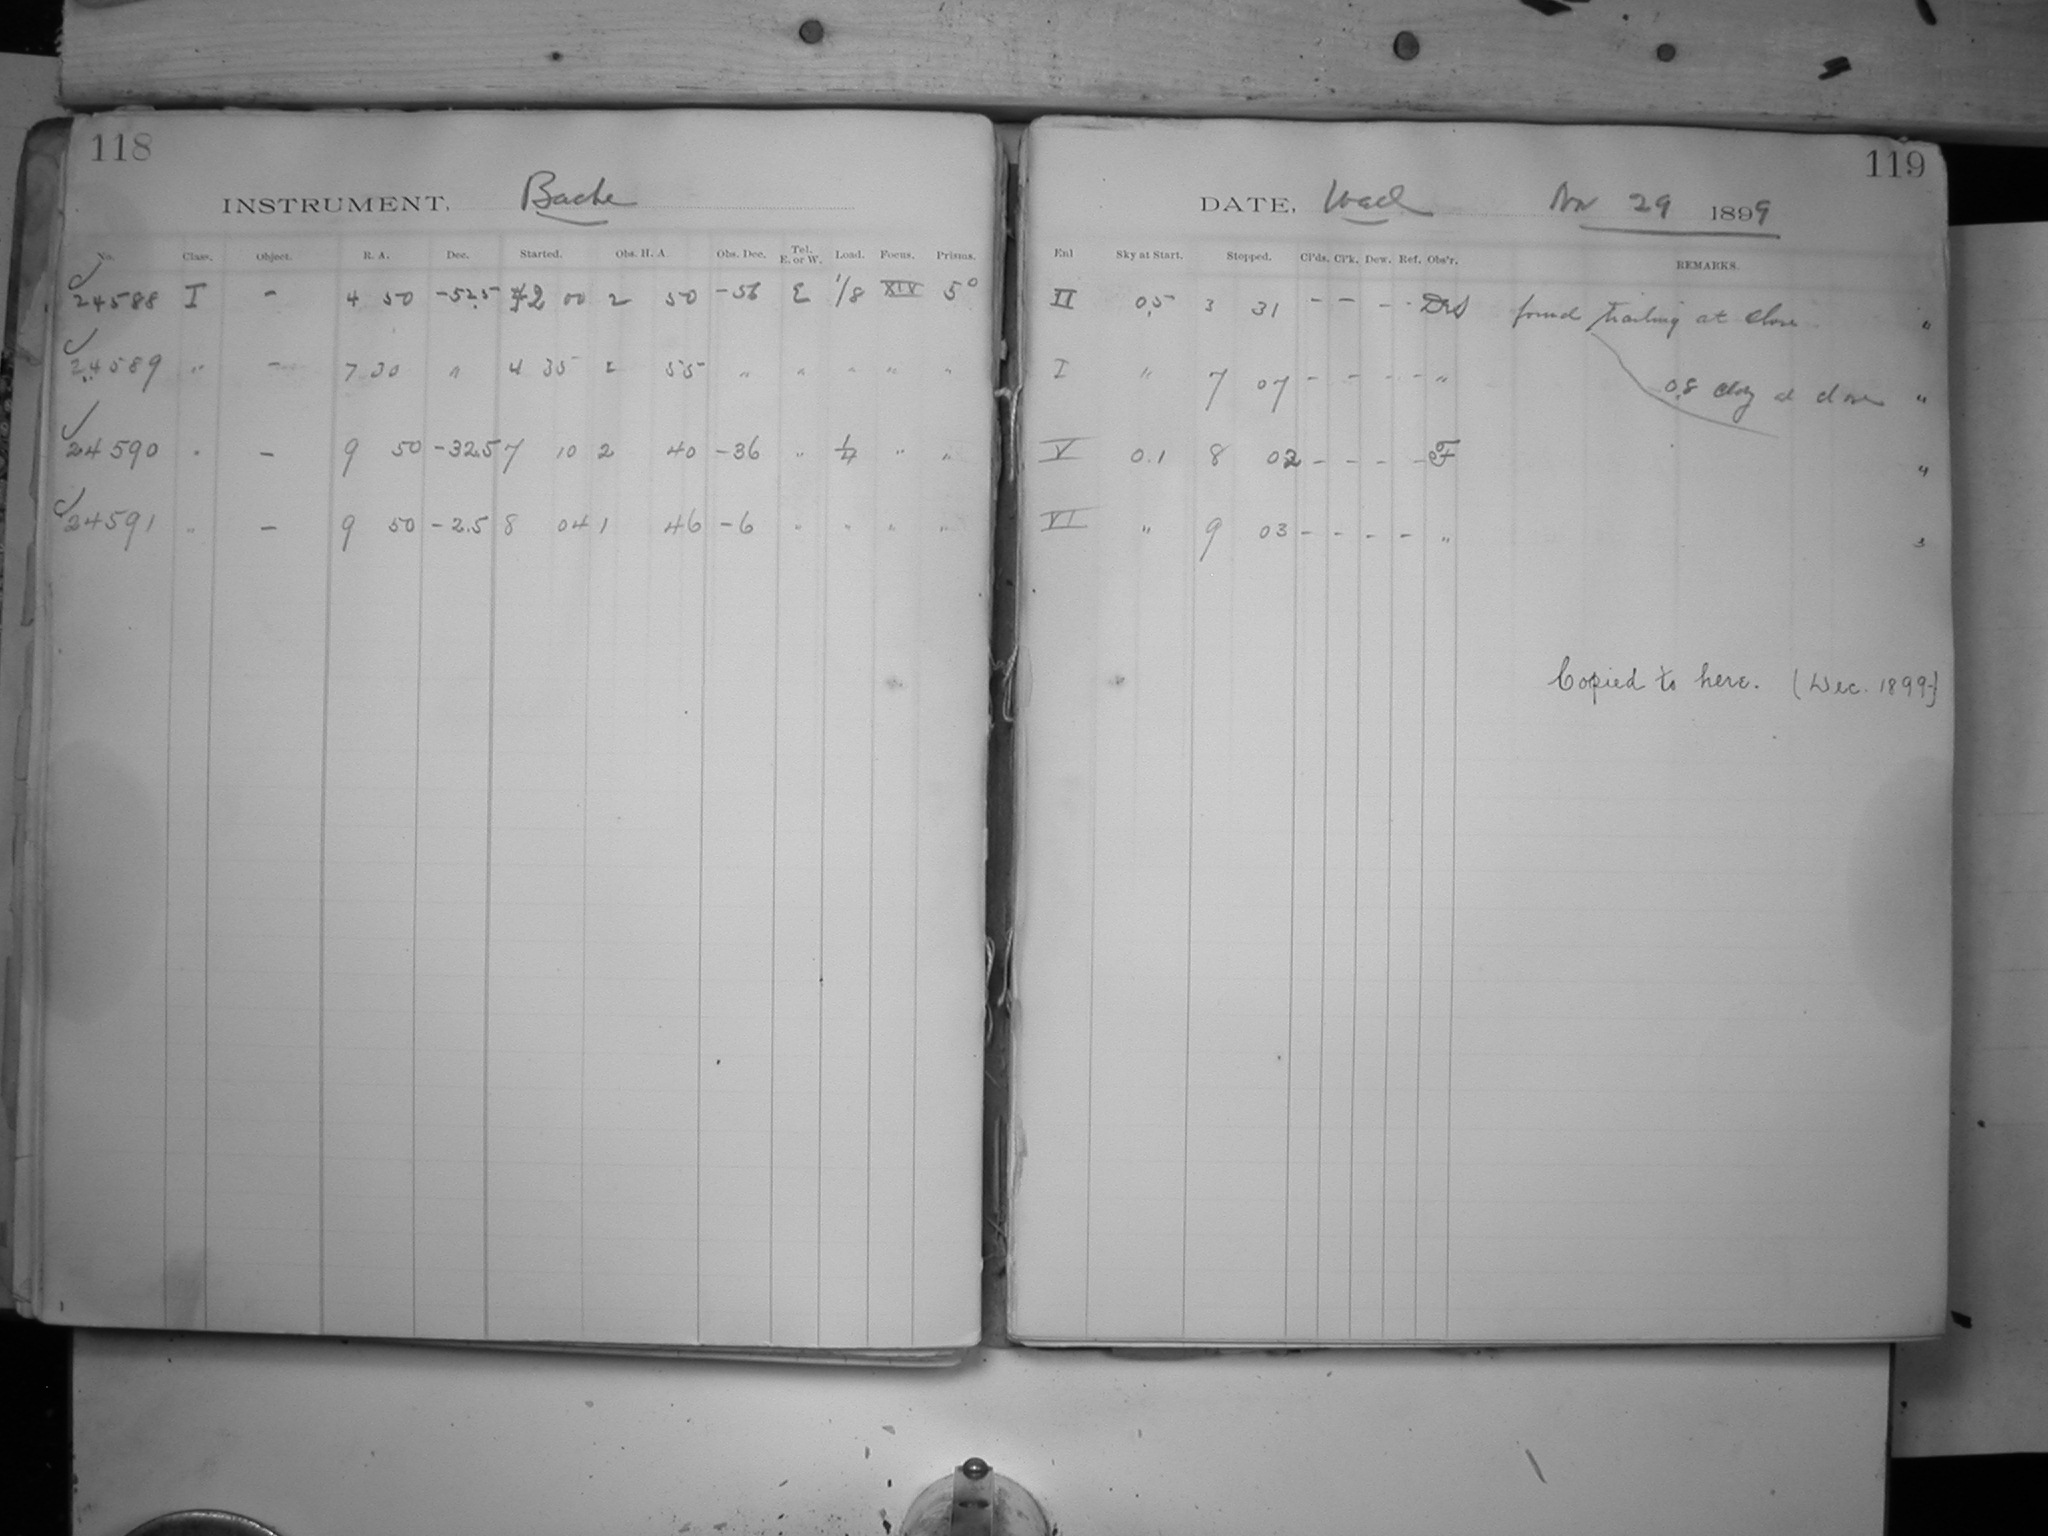 118
INSTRUMENT. Bache
No. Class. Object. R. A. Dec. Started. Obs. H. A. Obs. Dec. Tel. E. or W. Load. Focus. Prisms.
24588 I - 4 50 -52.5 2 00 2 50 -56 E 1/8 XIV 5°
24589 " - 7 30 " 4 35 2 55 " " " " "
24590 " - 9 50 -32.5 7 10 2 40 -36 " 1/4 " "
24591 " - 9 50 -2.5 8 04 1 46 -6 " " " "
119
DATE, Wed Nov 29 1899
Enl Sky at Start. Stopped. Cl'ds. Cl'k. Dew. Ref. Obs'r. REMARKS.
II 0.5 3 31 - - - - DRS found trailing at close "
I " 7 07 - - - - " 0.8 cldy at close "
V 0.1 8 02 - - - - F "
VI " 9 03 - - - - "
Copied to here. (Dec. 1899.)